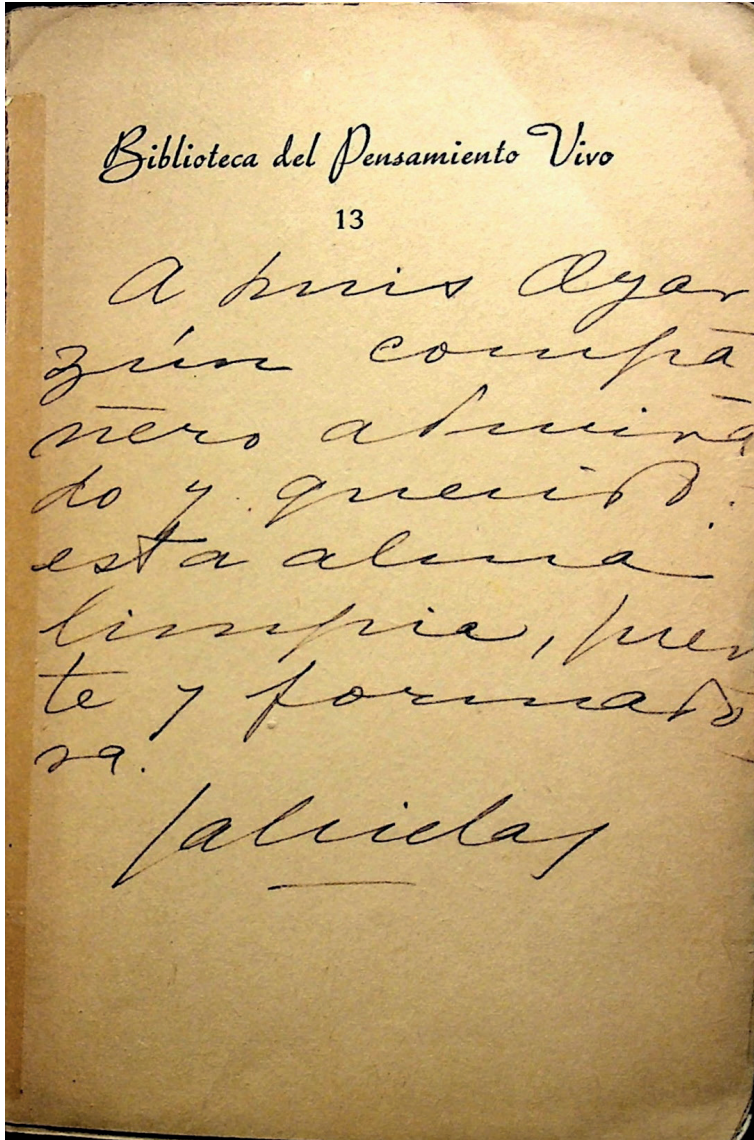 Biblioteca del Pensamiento Vivo
13
A Luis Oyar
zún compa
ñero admira
do y querido.
esta alma
limpia, fuer
te y formado
ra.
Gabriela